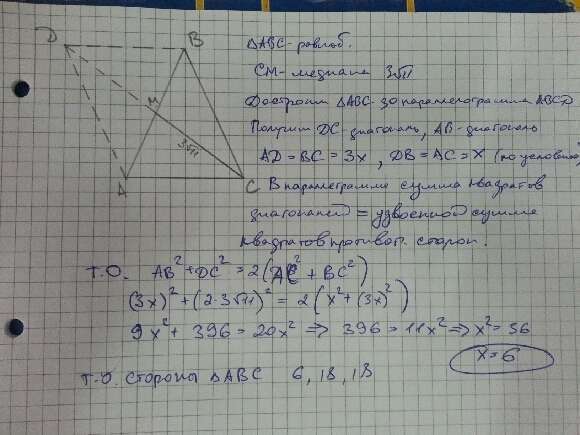 D
B
M
3√11
A
C
ΔABC-равноб.
CM-медиана 3√11
Достроим ΔABC-до параллелограмма ABCD
Получим DC-диагональ, AB-диагональ
AD=BC=3x, DB=AC=x (по условию)
В параллеграмме сумма квадратов
диагоналей = удвоенной сумме
квадратов против. сторон.
Т.О. AB²+DC²=2(AC²+BC²)
(3x)²+(2·3√11)²=2(x²+(3x)²)
9x²+396=20x² ⇒ 396=11x² ⇒ x²=36
x=6
Т.О. Стороны ΔABC 6, 18, 18